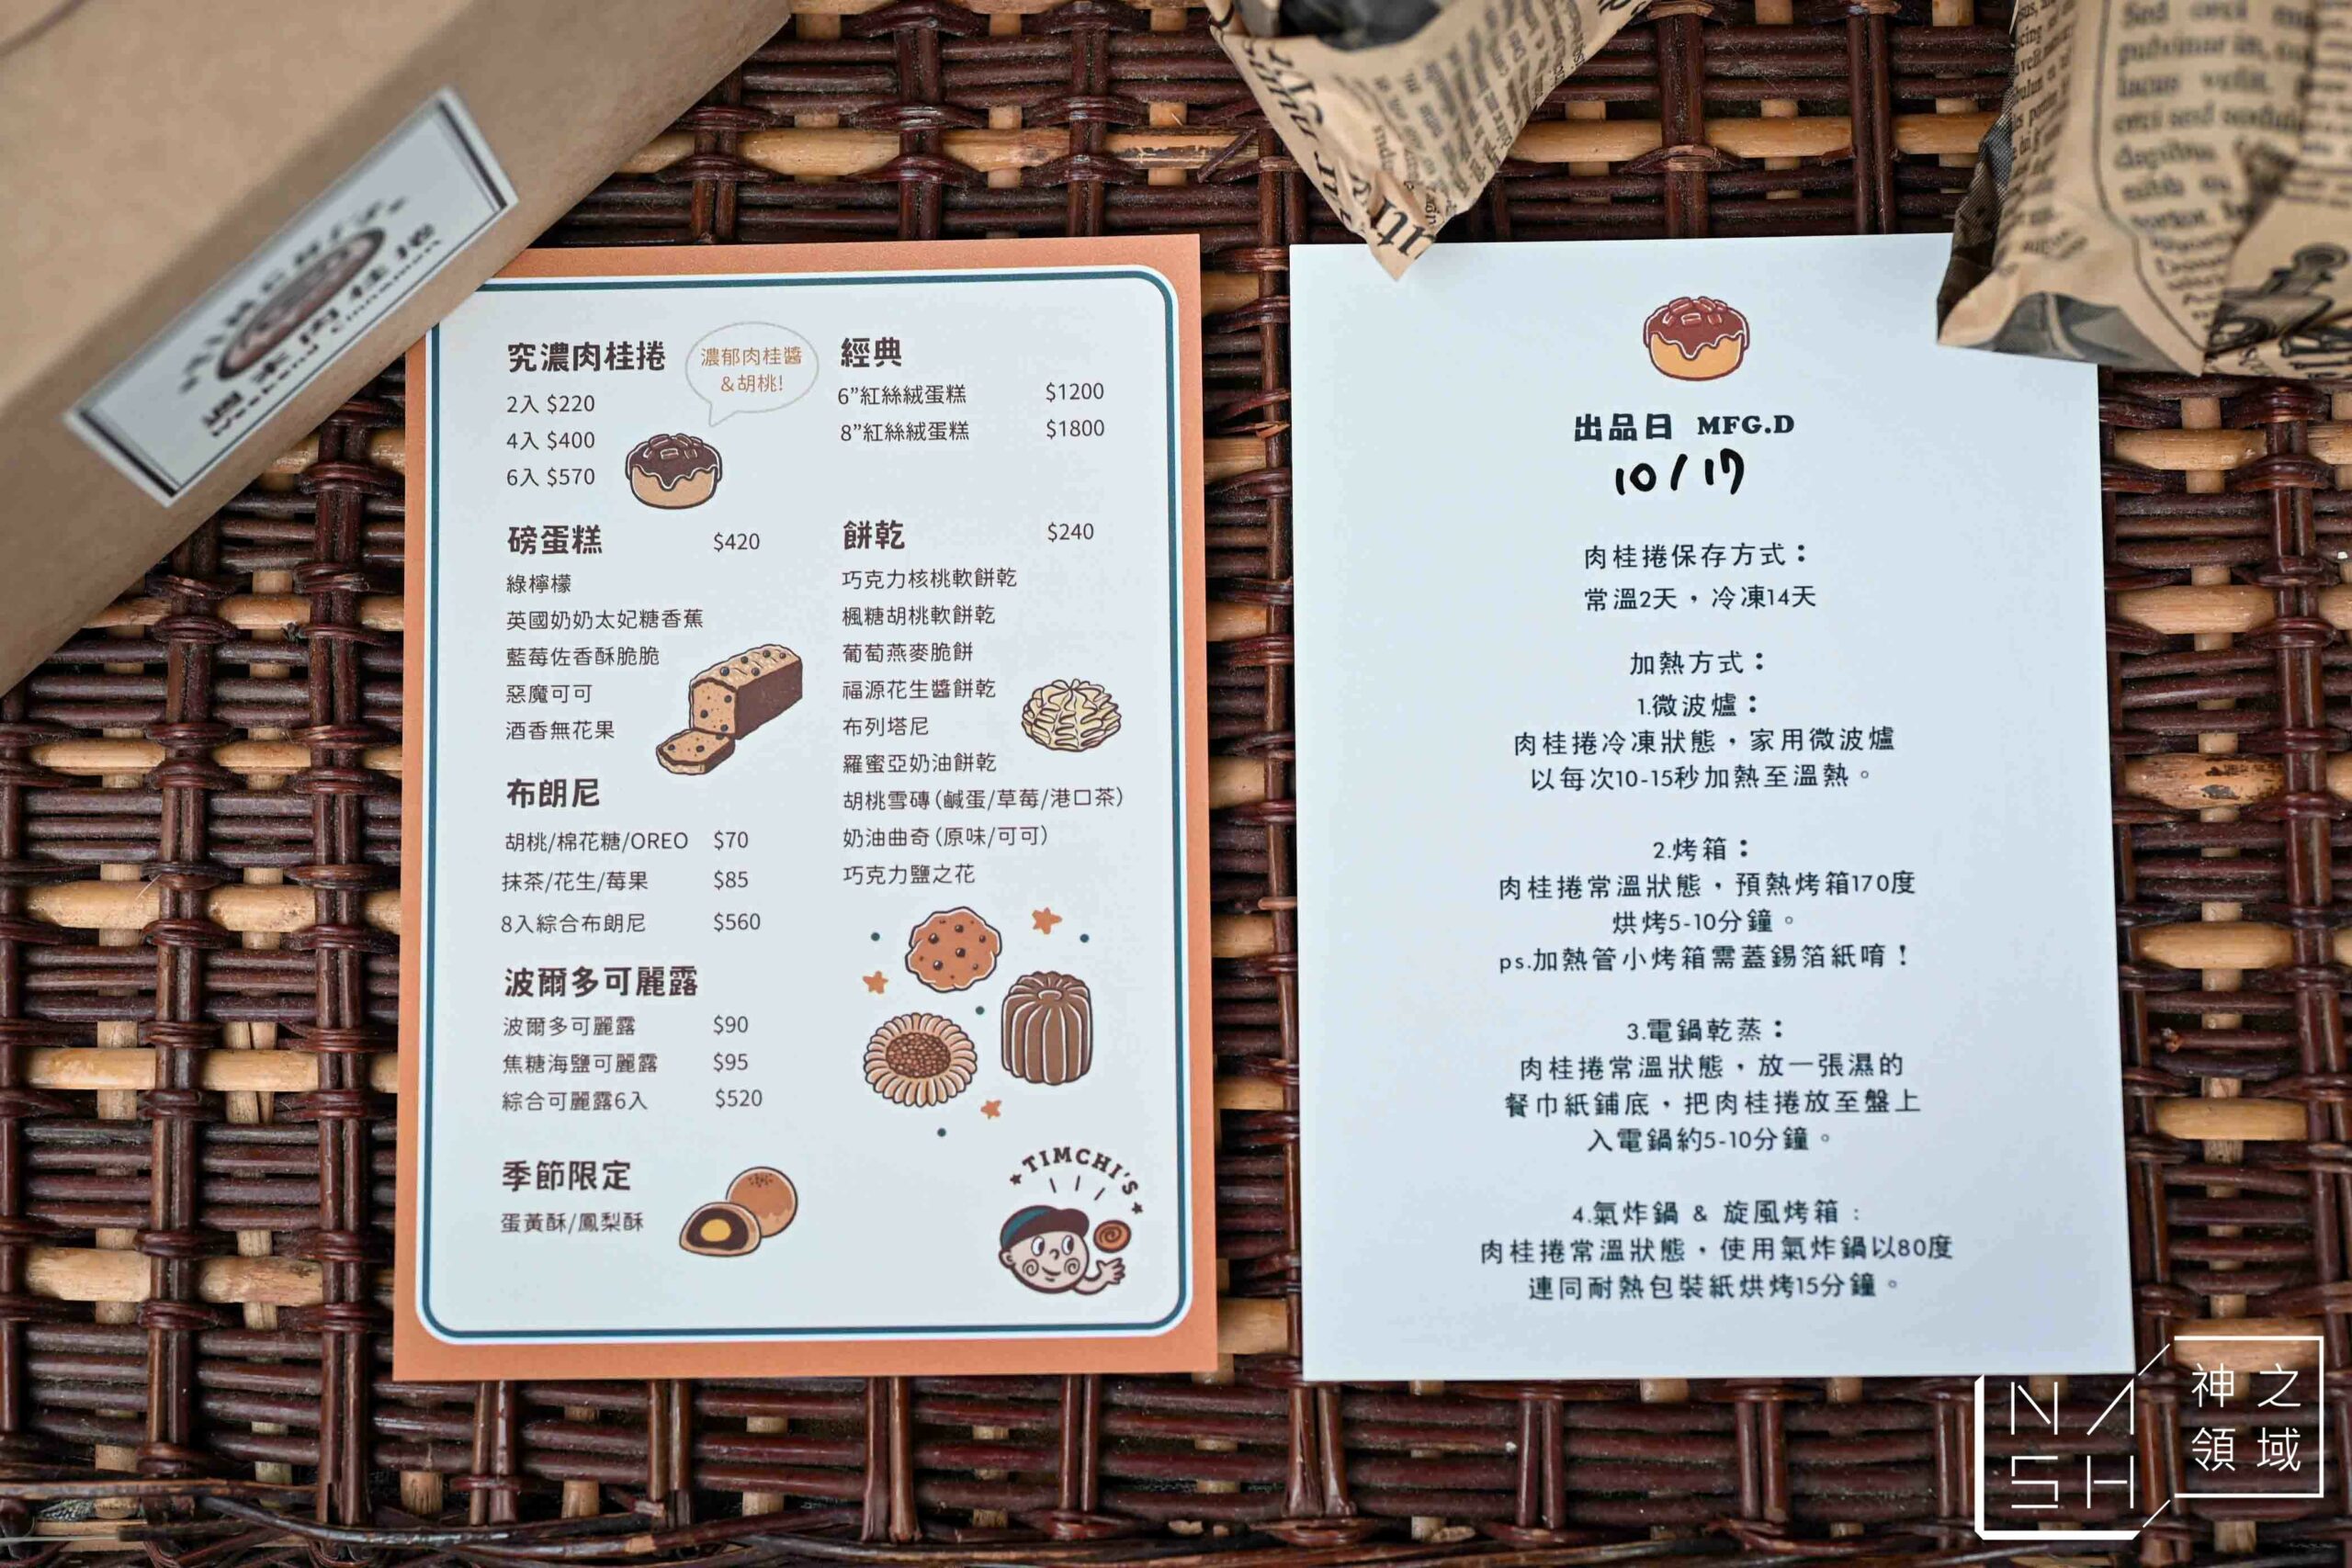 究濃肉桂捲
濃郁肉桂醬
&胡桃!
2入 $220
4入 $400
6入 $570
磅蛋糕 $420
綠檸檬
英國奶奶太妃糖香蕉
藍莓佐香酥脆脆
惡魔可可
酒香無花果
布朗尼
胡桃/棉花糖/OREO $70
抹茶/花生/莓果 $85
8入綜合布朗尼 $560
波爾多可麗露
波爾多可麗露 $90
焦糖海鹽可麗露 $95
綜合可麗露6入 $520
季節限定
蛋黃酥/鳳梨酥
經典
6”紅絲絨蛋糕 $1200
8”紅絲絨蛋糕 $1800
餅乾 $240
巧克力核桃軟餅乾
楓糖胡桃軟餅乾
葡萄燕麥脆餅
福源花生醬餅乾
布列塔尼
羅蜜亞奶油餅乾
胡桃雪磚(鹹蛋/草莓/港口茶)
奶油曲奇(原味/可可)
巧克力鹽之花
TIMCHI'S
出品日 MFG.D
10/17
肉桂捲保存方式：
常溫2天，冷凍14天
加熱方式：
1.微波爐：
肉桂捲冷凍狀態，家用微波爐
以每次10-15秒加熱至溫熱。
2.烤箱：
肉桂捲常溫狀態，預熱烤箱170度
烘烤5-10分鐘。
ps.加熱管小烤箱需蓋錫箔紙唷！
3.電鍋乾蒸：
肉桂捲常溫狀態，放一張濕的
餐巾紙鋪底，把肉桂捲放至盤上
入電鍋約5-10分鐘。
4.氣炸鍋 & 旋風烤箱：
肉桂捲常溫狀態，使用氣炸鍋以80度
連同耐熱包裝紙烘烤15分鐘。
NASH
神之
領域